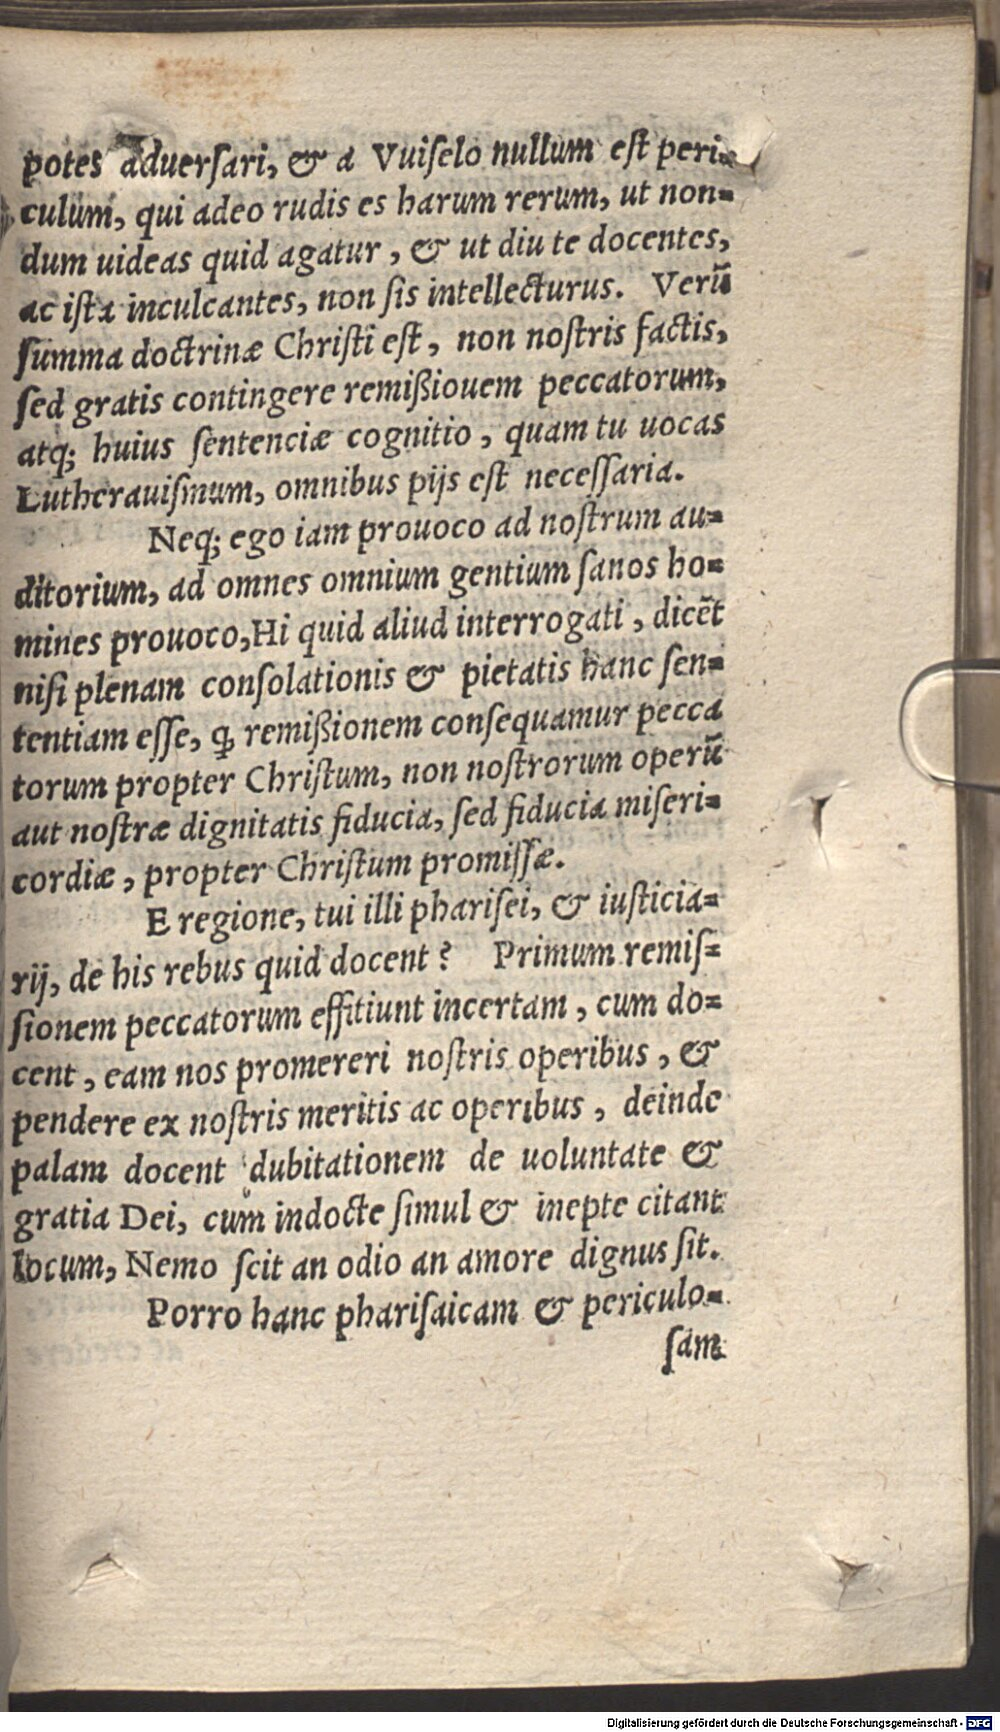 potes aduerſari, & a Vuiſelo nullum eſt peri⸗
culum, qui adeo rudis es harum rerum, ut non⸗
dum uideas quid agatur, & ut diu te docentes,
ac iſta inculcantes, non ſis intellecturus. Verū
ſumma doctrinæ Chriſti eſt, non noſtris factis,
ſed gratis contingere remißiouem peccatorum,
atq; huius ſentenciæ cognitio, quam tu uocas
Lutherauiſmum, omnibus pijs eſt neceſſaria.
Neq; ego iam prouoco ad noſtrum au⸗
ditorium, ad omnes omnium gentium ſanos ho⸗
mines prouoco, Hi quid aliud interrogati, dicẽt
niſi plenam conſolationis & pietatis hanc ſen⸗
tentiam eſſe, ꝙ remißionem conſequamur pecca
torum propter Chriſtum, non noſtrorum operū
aut noſtræ dignitatis fiducia, ſed fiducia miſeri⸗
cordiæ, propter Chriſtum promiſſæ.
E regione, tui illi phariſei, & iuſticia⸗
rij, de his rebus quid docent? Primum remiſ⸗
ſionem peccatorum effitiunt incertam, cum do⸗
cent, eam nos promereri noſtris operibus, &
pendere ex noſtris meritis ac operibus, deinde
palam docent dubitationem de uoluntate &
gratia Dei, cum indocte ſimul & inepte citant
locum, Nemo ſcit an odio an amore dignus ſit.
Porro hanc phariſaicam & periculo⸗
ſam
Digitalisierung gefördert durch die Deutsche Forschungsgemeinschaft - DFG